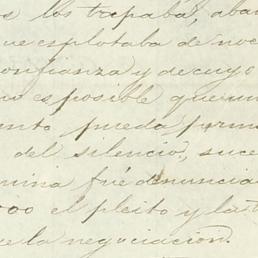 os los trepaba, aban
que esplotaba de noc
onfianza y de cuyo
no es posible que un
ento pueda perma
del silencio, suce
mina fué denuncia
000 el pleito y la t
de la negociacion.